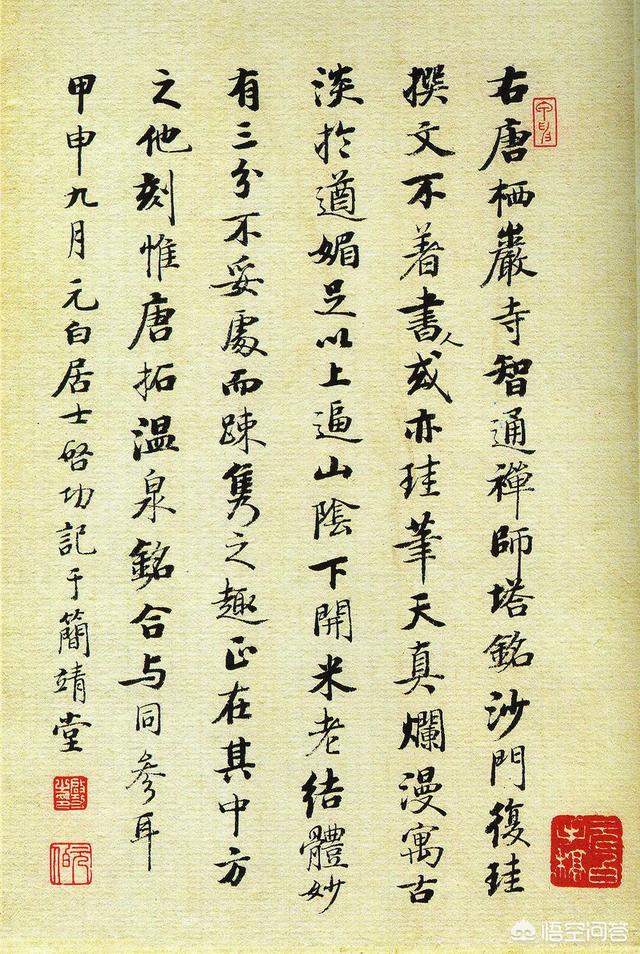 右唐栖巖寺智通禪師塔銘沙門復珪
撰文不著書人或亦珪筆天真爛漫寓古
淡於遒媚足以上逼山陰下開米老結體妙
有三分不妥處而踈雋之趣正在其中方
之他刻惟唐拓温泉銘合与同參耳
甲申九月元白居士啓功記于簡靖堂
悟空问答